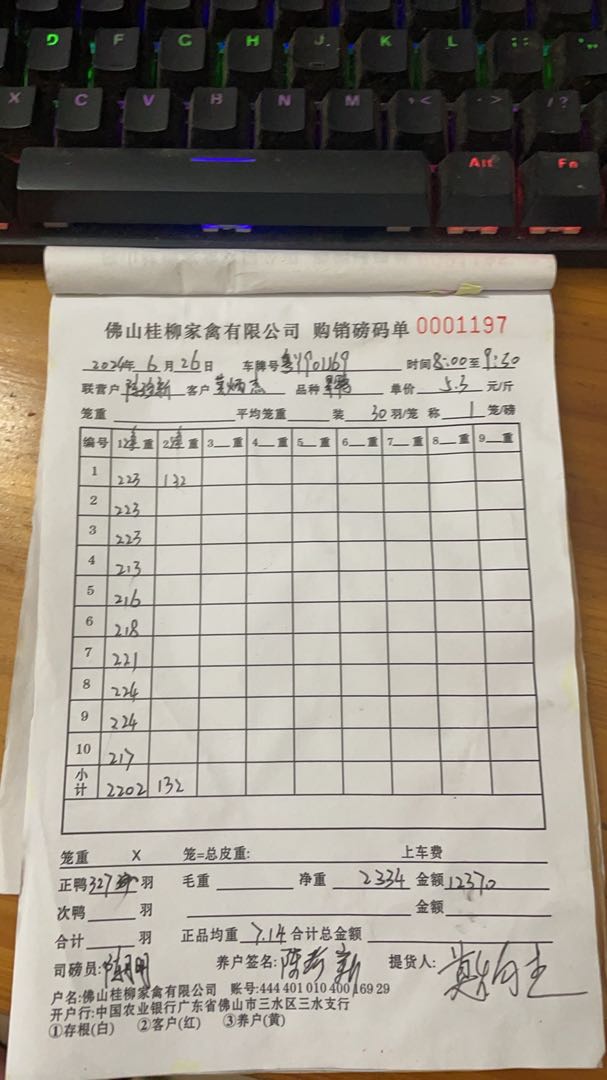 D F G H J K L : ;
X C V B N M , < . > / ?
Alt Fn
佛山桂柳家禽有限公司 购销磅码单 0001197
2024年 6 月 26 日 车牌号 粤Y901169 时间 8:00 至 9:30
联营户 陈珍新 客户 黄炳杰 品种 单价 5.3 元/斤
笼重 平均笼重 装 30 羽/笼 称 1 笼/磅
编号 1 净重 2 净重 3 重 4 重 5 重 6 重 7 重 8 重 9 重
1 223 132
2 223
3 223
4 213
5 216
6 218
7 221
8 224
9 224
10 217
小计 2202 132
笼重 X 笼=总皮重: 上车费
正鸭 327 羽 毛重 净重 2334 金额 12370
次鸭 羽 金额
合计 羽 正品均重 7.14 合计总金额
司磅员: 养户签名: 陈珍新 提货人:
户名:佛山桂柳家禽有限公司 账号:444 401 010 400 169 29
开户行:中国农业银行广东省佛山市三水区三水支行
①存根(白) ②客户(红) ③养户(黄)